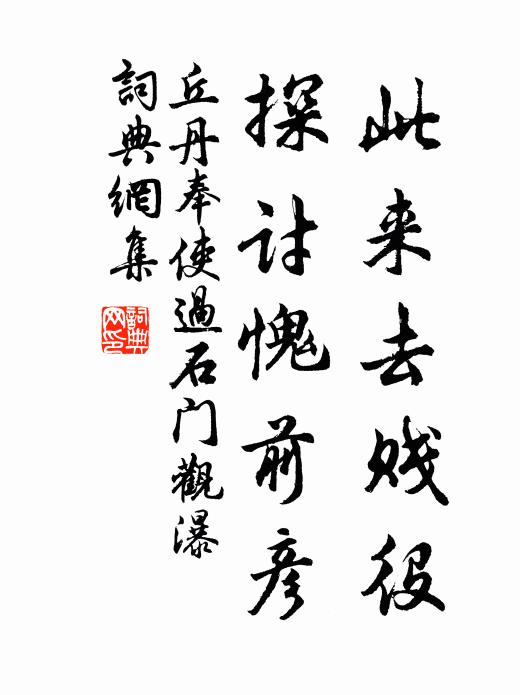 此来去贱役
探讨愧前彦
丘丹奉使過石门觀瀑
詞典網集
詞典网印